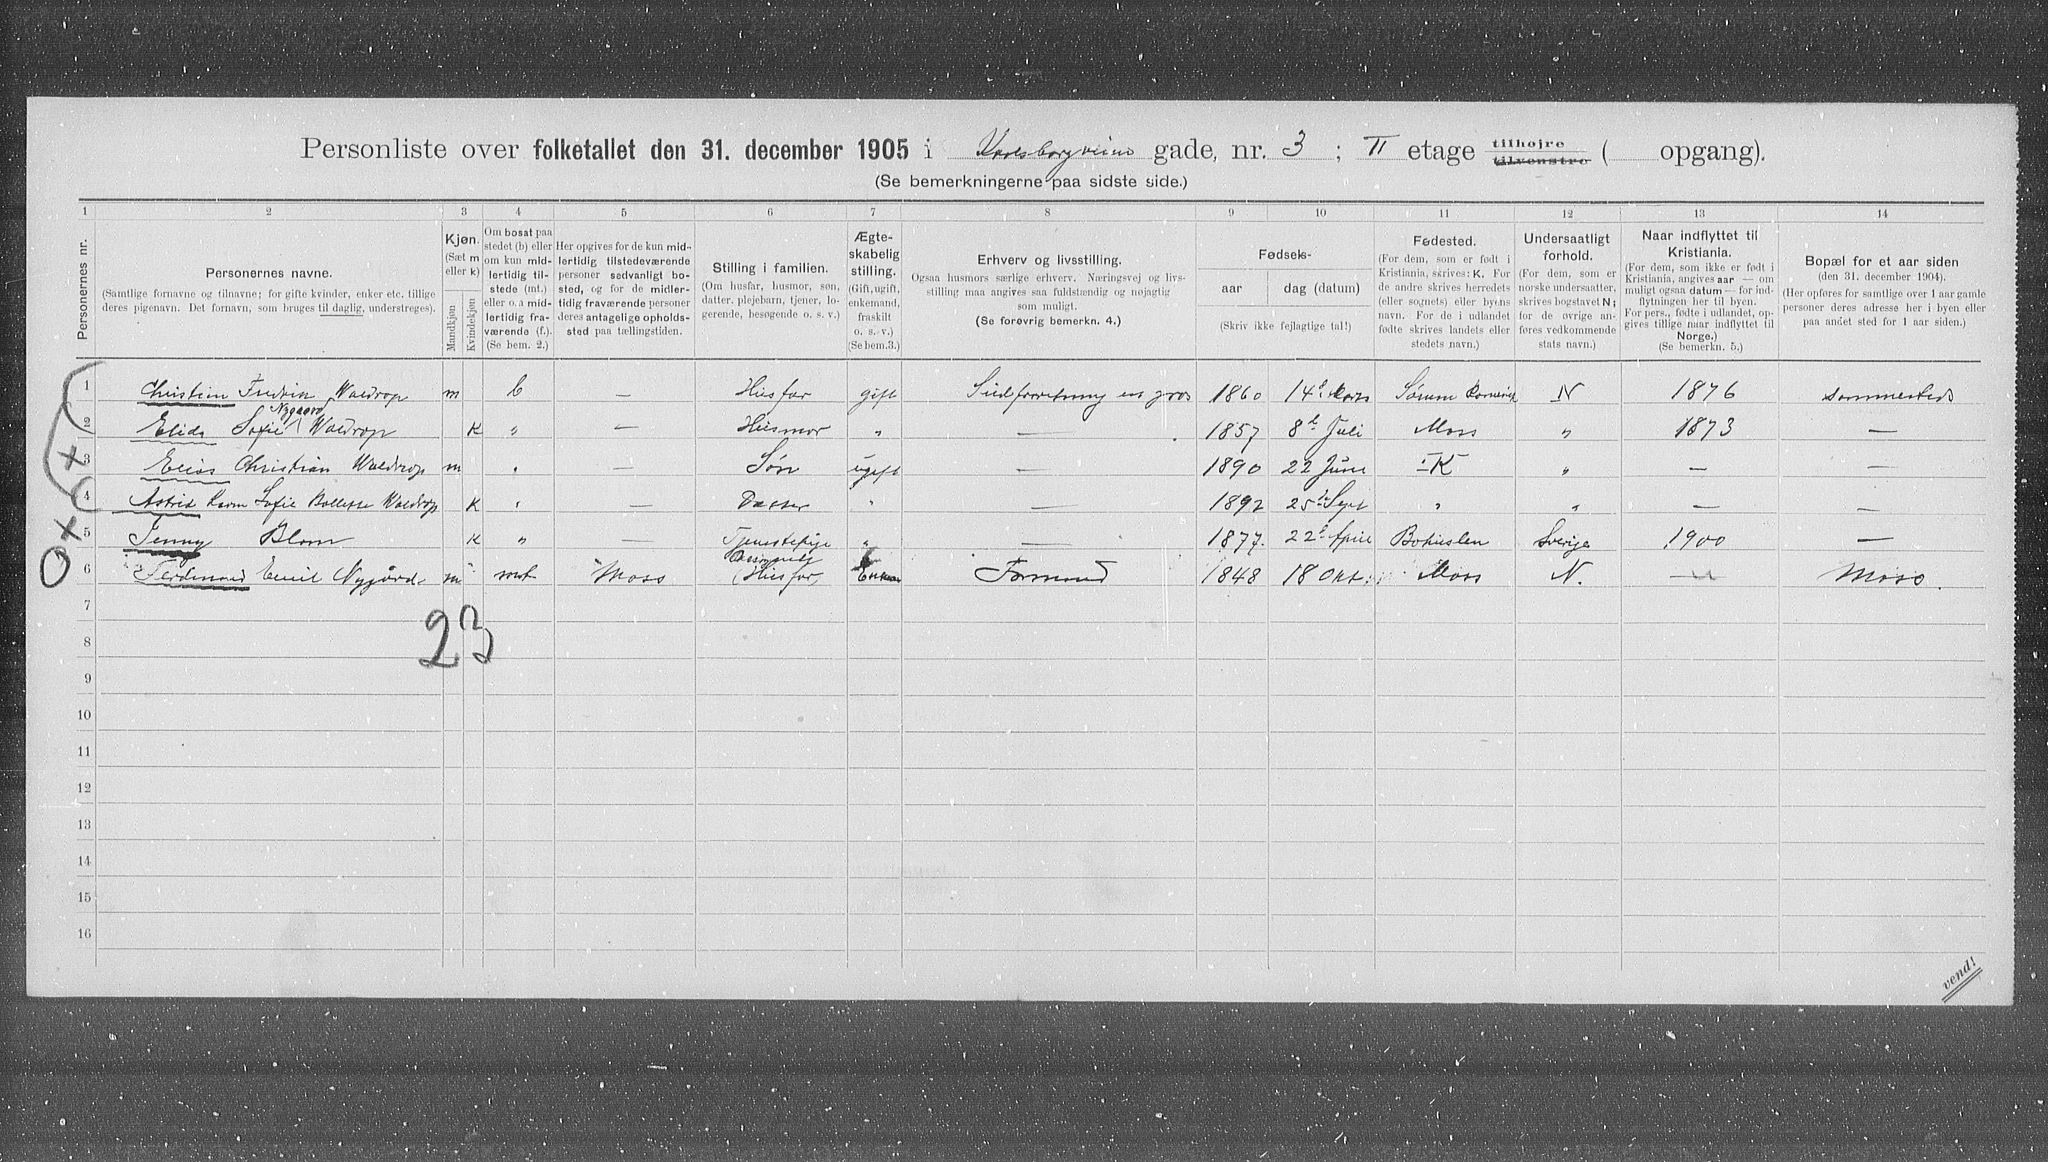 Personliste over folketallet den 31. december 1905 i Karlsborgveien gade, nr. 3 ; II etage tilhøjre tilvenstre ( opgang).
(Se bemerkningerne paa sidste side.)
1 2 3 4 5 6 7 8 9 10 11 12 13 14
Personernes nr.
Personernes navne.
(Samtlige fornavne og tilnavne; for gifte kvinder, enker etc. tillige
deres pigenavn. Det fornavn, som bruges til daglig, understreges).
Kjøn.
(Sæt m
eller k)
Mandkjøn
Kvindekjøn
Om bosat paa
stedet (b) eller
om kun mid-
lertidig til-
stede (mt.)
eller o. a mid-
lertidig fra-
værende (f.).
(Se bem. 2.)
Her opgives for de kun mid-
lertidig tilstedeværende
personer sedvanligt bo-
sted, og for de midler-
tidig fraværende personer
deres antagelige opholds-
sted paa tællingstiden.
Stilling i familien.
(Om husfar, husmor, søn,
datter, plejebarn, tjener, lo-
gerende, besøgende o. s. v.)
Ægte-
skabelig
stilling.
(Gift, ugift,
enkemand,
fraskilt
o. s. v.)
(Se bem.3.)
Erhverv og livsstilling.
Ogsaa husmors særlige erhverv. Næringsvej og livs-
stilling maa angives saa fuldstændig og nøjagtig
som muligt.
(Se forøvrig bemerkn. 4.)
Fødsels-
aar dag (datum)
(Skriv ikke fejlagtige tal!)
Fødested.
(For dem, som er født i
Kristiania, skrives: K. For
de andre skrives herredets
(eller sognets) eller byens
navn. For de i udlandet
fødte skrives landets eller
stedets navn.)
Undersaatligt
forhold.
(For dem, som er
norske undersaatter,
skrives bogstavet N;
for de øvrige an-
føres vedkommende
stats navn.)
Naar indflyttet til
Kristiania.
(For dem, som ikke er født i
Kristiania, angives aar — om
muligt ogsaa datum — for ind-
flytningen her til byen.
For pers., fødte i udlandet, op-
gives tillige naar indflyttet til
Norge.)
(Se bemerkn. 5.)
Bopæl for et aar siden
(den 31. december 1904).
(Her opføres for samtlige over 1 aar gamle
personer deres adresse her i byen eller
paa andet sted for 1 aar siden.)
1 Christian Fredrik Waldrop m b — Husfar gift en gros 1860 14d Marts N 1876 sammesteds
Nygaard
2 Elida Sofie Waldrop K " — Husmor " — 1857 8d Juli Moss " 1873 —
3 Elias Christian Waldrop m " — Søn ugift — 1890 22 Juni K " — —
4 Astrid Karen Sofie Waldrop K " — Datter " — 1892 25d Sept " " — —
5 Jenny Blom K " — Tjenestepige " — 1877. 22d April Bohuslen Sverige 1900 —
6 Ferdinand Emil Nygård m mt Moss (Husfar) Enkem Formand 1848 18 Okt. Moss N. — Moss.
7
23
8
9
10
11
12
13
14
15
16
vend!